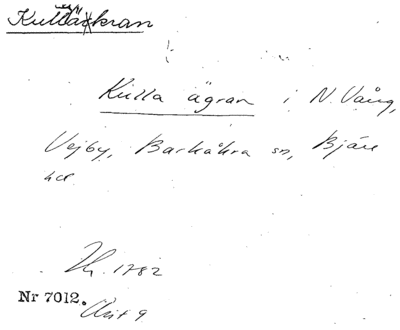 Kulla ägran i N. Vång,
Vejby, Barkåkra sn, Bjäre
hd.
Lh. 1782
Nr 7012.
Akt 9